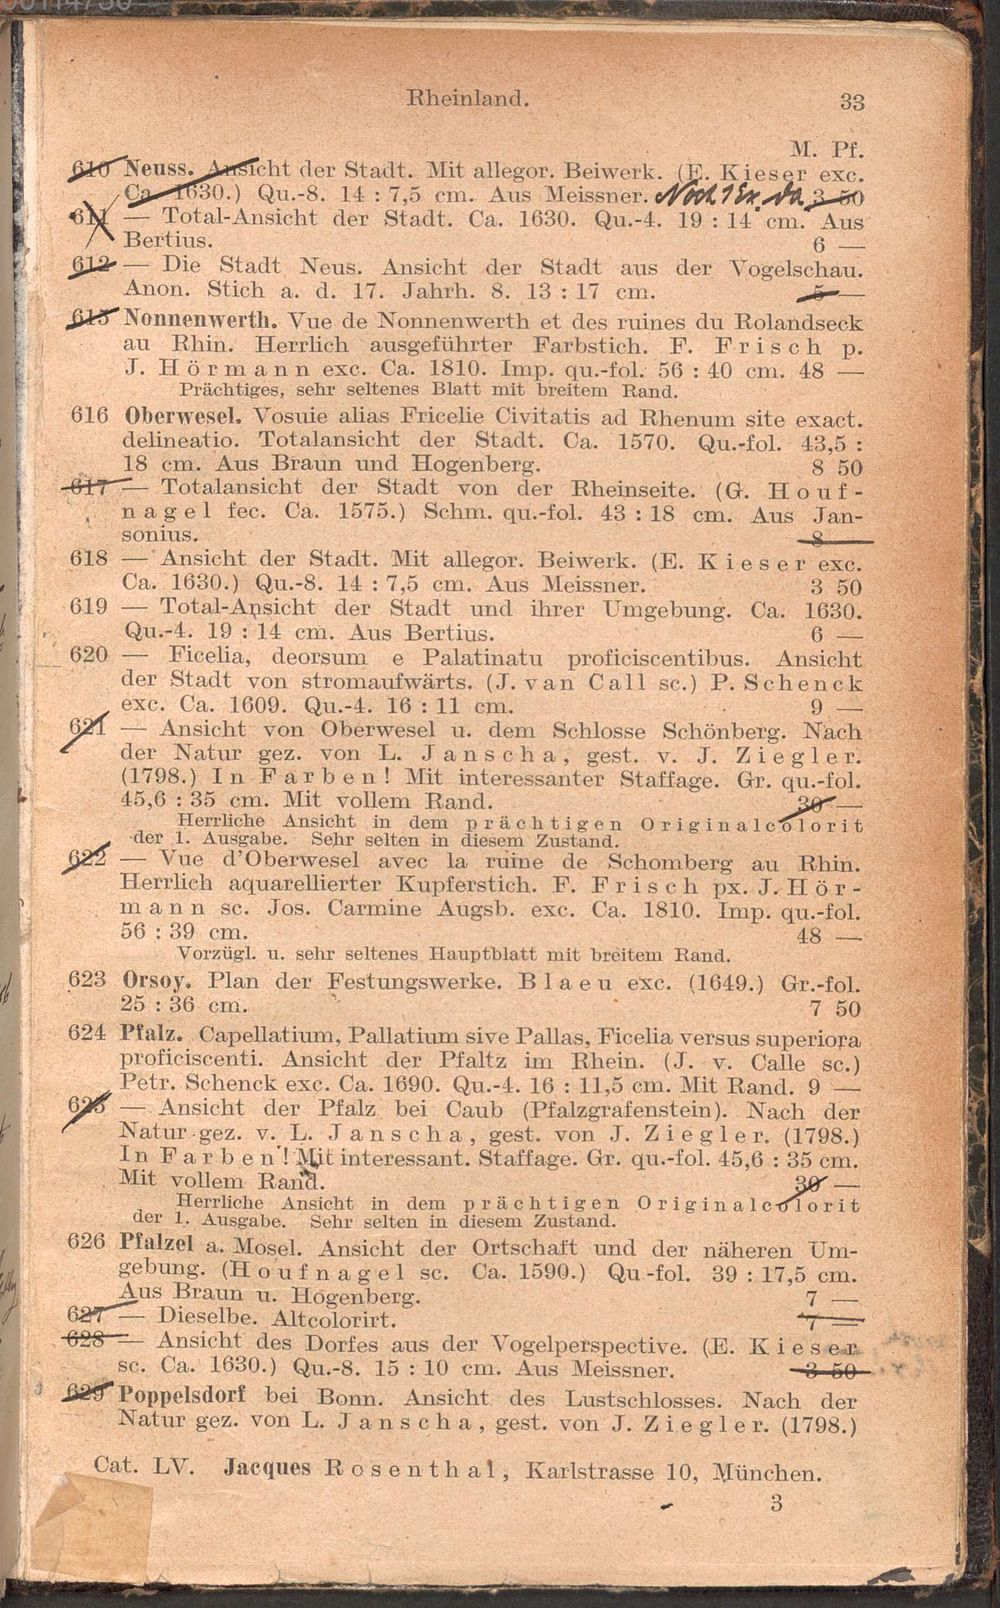 Rheinland. 33
M. Pf.
610 Neuss. Ansicht der Stadt. Mit allegor. Beiwerk. (E. Kieser exc.
Ca. 1630.) Qu.-8. 14 : 7,5 cm. Aus Meissner. Noch 1 Ex. da 3 50
611 — Total-Ansicht der Stadt. Ca. 1630. Qu.-4. 19 : 14 cm. Aus
Bertius. 6 —
612 — Die Stadt Neus. Ansicht der Stadt aus der Vogelschau.
Anon. Stich a. d. 17. Jahrh. 8. 13 : 17 cm. 5 —
615 Nonnenwerth. Vue de Nonnenwerth et des ruines du Rolandseck
au Rhin. Herrlich ausgeführter Farbstich. F. Frisch p.
J. Hörmann exc. Ca. 1810. Imp. qu.-fol. 56 : 40 cm. 48 —
Prächtiges, sehr seltenes Blatt mit breitem Rand.
616 Oberwesel. Vosuie alias Fricelie Civitatis ad Rhenum site exact.
delineatio. Totalansicht der Stadt. Ca. 1570. Qu.-fol. 43,5 :
18 cm. Aus Braun und Hogenberg. 8 50
617 — Totalansicht der Stadt von der Rheinseite. (G. Houf-
nagel fec. Ca. 1575.) Schm. qu.-fol. 43 : 18 cm. Aus Jan-
sonius. 8 —
618 — Ansicht der Stadt. Mit allegor. Beiwerk. (E. Kieser exc.
Ca. 1630.) Qu.-8. 14 : 7,5 cm. Aus Meissner. 3 50
619 — Total-Ansicht der Stadt und ihrer Umgebung. Ca. 1630.
Qu.-4. 19 : 14 cm. Aus Bertius. 6 —
620 — Ficelia, deorsum e Palatinatu proficiscentibus. Ansicht
der Stadt von stromaufwärts. (J. van Call sc.) P. Schenck
exc. Ca. 1609. Qu.-4. 16 : 11 cm. 9 —
621 — Ansicht von Oberwesel u. dem Schlosse Schönberg. Nach
der Natur gez. von L. Janscha, gest. v. J. Ziegler.
(1798.) In Farben! Mit interessanter Staffage. Gr. qu.-fol.
45,6 : 35 cm. Mit vollem Rand. 30 —
Herrliche Ansicht in dem prächtigen Originalcolorit
der 1. Ausgabe. Sehr selten in diesem Zustand.
622 — Vue d'Oberwesel avec la ruine de Schomberg au Rhin.
Herrlich aquarellierter Kupferstich. F. Frisch px. J. Hör-
mann sc. Jos. Carmine Augsb. exc. Ca. 1810. Imp. qu.-fol.
56 : 39 cm. 48 —
Vorzügl. u. sehr seltenes Hauptblatt mit breitem Rand.
623 Orsoy. Plan der Festungswerke. Blaeu exc. (1649.) Gr.-fol.
25 : 36 cm. 7 50
624 Pfalz. Capellatium, Pallatium sive Pallas, Ficelia versus superiora
proficiscenti. Ansicht der Pfaltz im Rhein. (J. v. Calle sc.)
Petr. Schenck exc. Ca. 1690. Qu.-4. 16 : 11,5 cm. Mit Rand. 9 —
625 — Ansicht der Pfalz bei Caub (Pfalzgrafenstein). Nach der
Natur gez. v. L. Janscha, gest. von J. Ziegler. (1798.)
In Farben! Mit interessant. Staffage. Gr. qu.-fol. 45,6 : 35 cm.
Mit vollem Rand. 30 —
Herrliche Ansicht in dem prächtigen Originalcolorit
der 1. Ausgabe. Sehr selten in diesem Zustand.
626 Pfalzel a. Mosel. Ansicht der Ortschaft und der näheren Um-
gebung. (Houfnagel sc. Ca. 1590.) Qu-fol. 39 : 17,5 cm.
Aus Braun u. Hogenberg. 7 —
627 — Dieselbe. Altcolorirt. 7 —
628 — Ansicht des Dorfes aus der Vogelperspective. (E. Kieser
sc. Ca. 1630.) Qu.-8. 15 : 10 cm. Aus Meissner. 3 50
629 Poppelsdorf bei Bonn. Ansicht des Lustschlosses. Nach der
Natur gez. von L. Janscha, gest. von J. Ziegler. (1798.)
Cat. LV. Jacques Rosenthal, Karlstrasse 10, München.
3